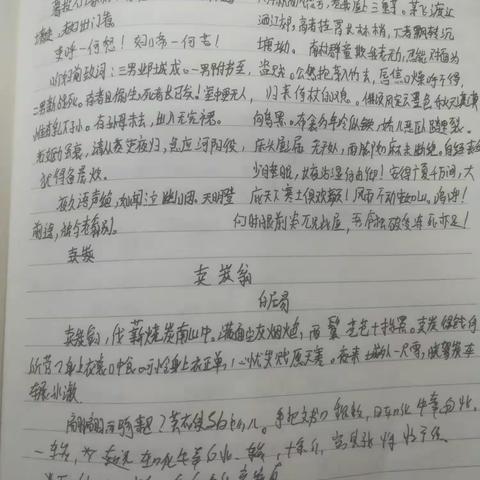 墙走，老妇出门看。
吏呼一何怒！妇啼一何苦！
听妇前致词：三男邺城戍。一男附书至，
二男新战死。存者且偷生，死者长已矣！室中更无人，
惟有乳下孙。有孙母未去，出入无完裙。
老妪力虽衰，请从吏夜归，急应河阳役，
犹得备晨炊。
夜久语声绝，如闻泣幽咽。天明登
前途，独与老翁别。
卷我屋上三重茅。茅飞渡江
洒江郊，高者挂罥长林梢，下者飘转沉
塘坳。南村群童欺我老无力，忍能对面为
盗贼。公然抱茅入竹去，唇焦口燥呼不得，
归来倚杖自叹息。俄顷风定云墨色，秋天漠漠
向昏黑。布衾多年冷似铁，娇儿恶卧踏里裂。
床头屋漏无干处，雨脚如麻未断绝。自经丧乱
少睡眠，长夜沾湿何由彻！安得广厦千万间，大
庇天下寒士俱欢颜！风雨不动安如山。呜呼！
何时眼前突兀见此屋，吾庐独破受冻死亦足！
卖炭
卖炭翁
白居易
卖炭翁，伐薪烧炭南山中。满面尘灰烟火色，两鬓苍苍十指黑。卖炭得钱何
所营？身上衣裳口中食。可怜身上衣正单，心忧炭贱愿天寒。夜来城外一尺雪，晓驾炭车
辗冰辙。
翩翩两骑来是？黄衣使者白衫儿。手把文书口称敕，
一车炭，